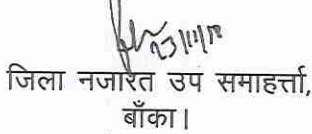 23/11/18
जिला नजारत उप समाहर्त्ता,
बाँका।